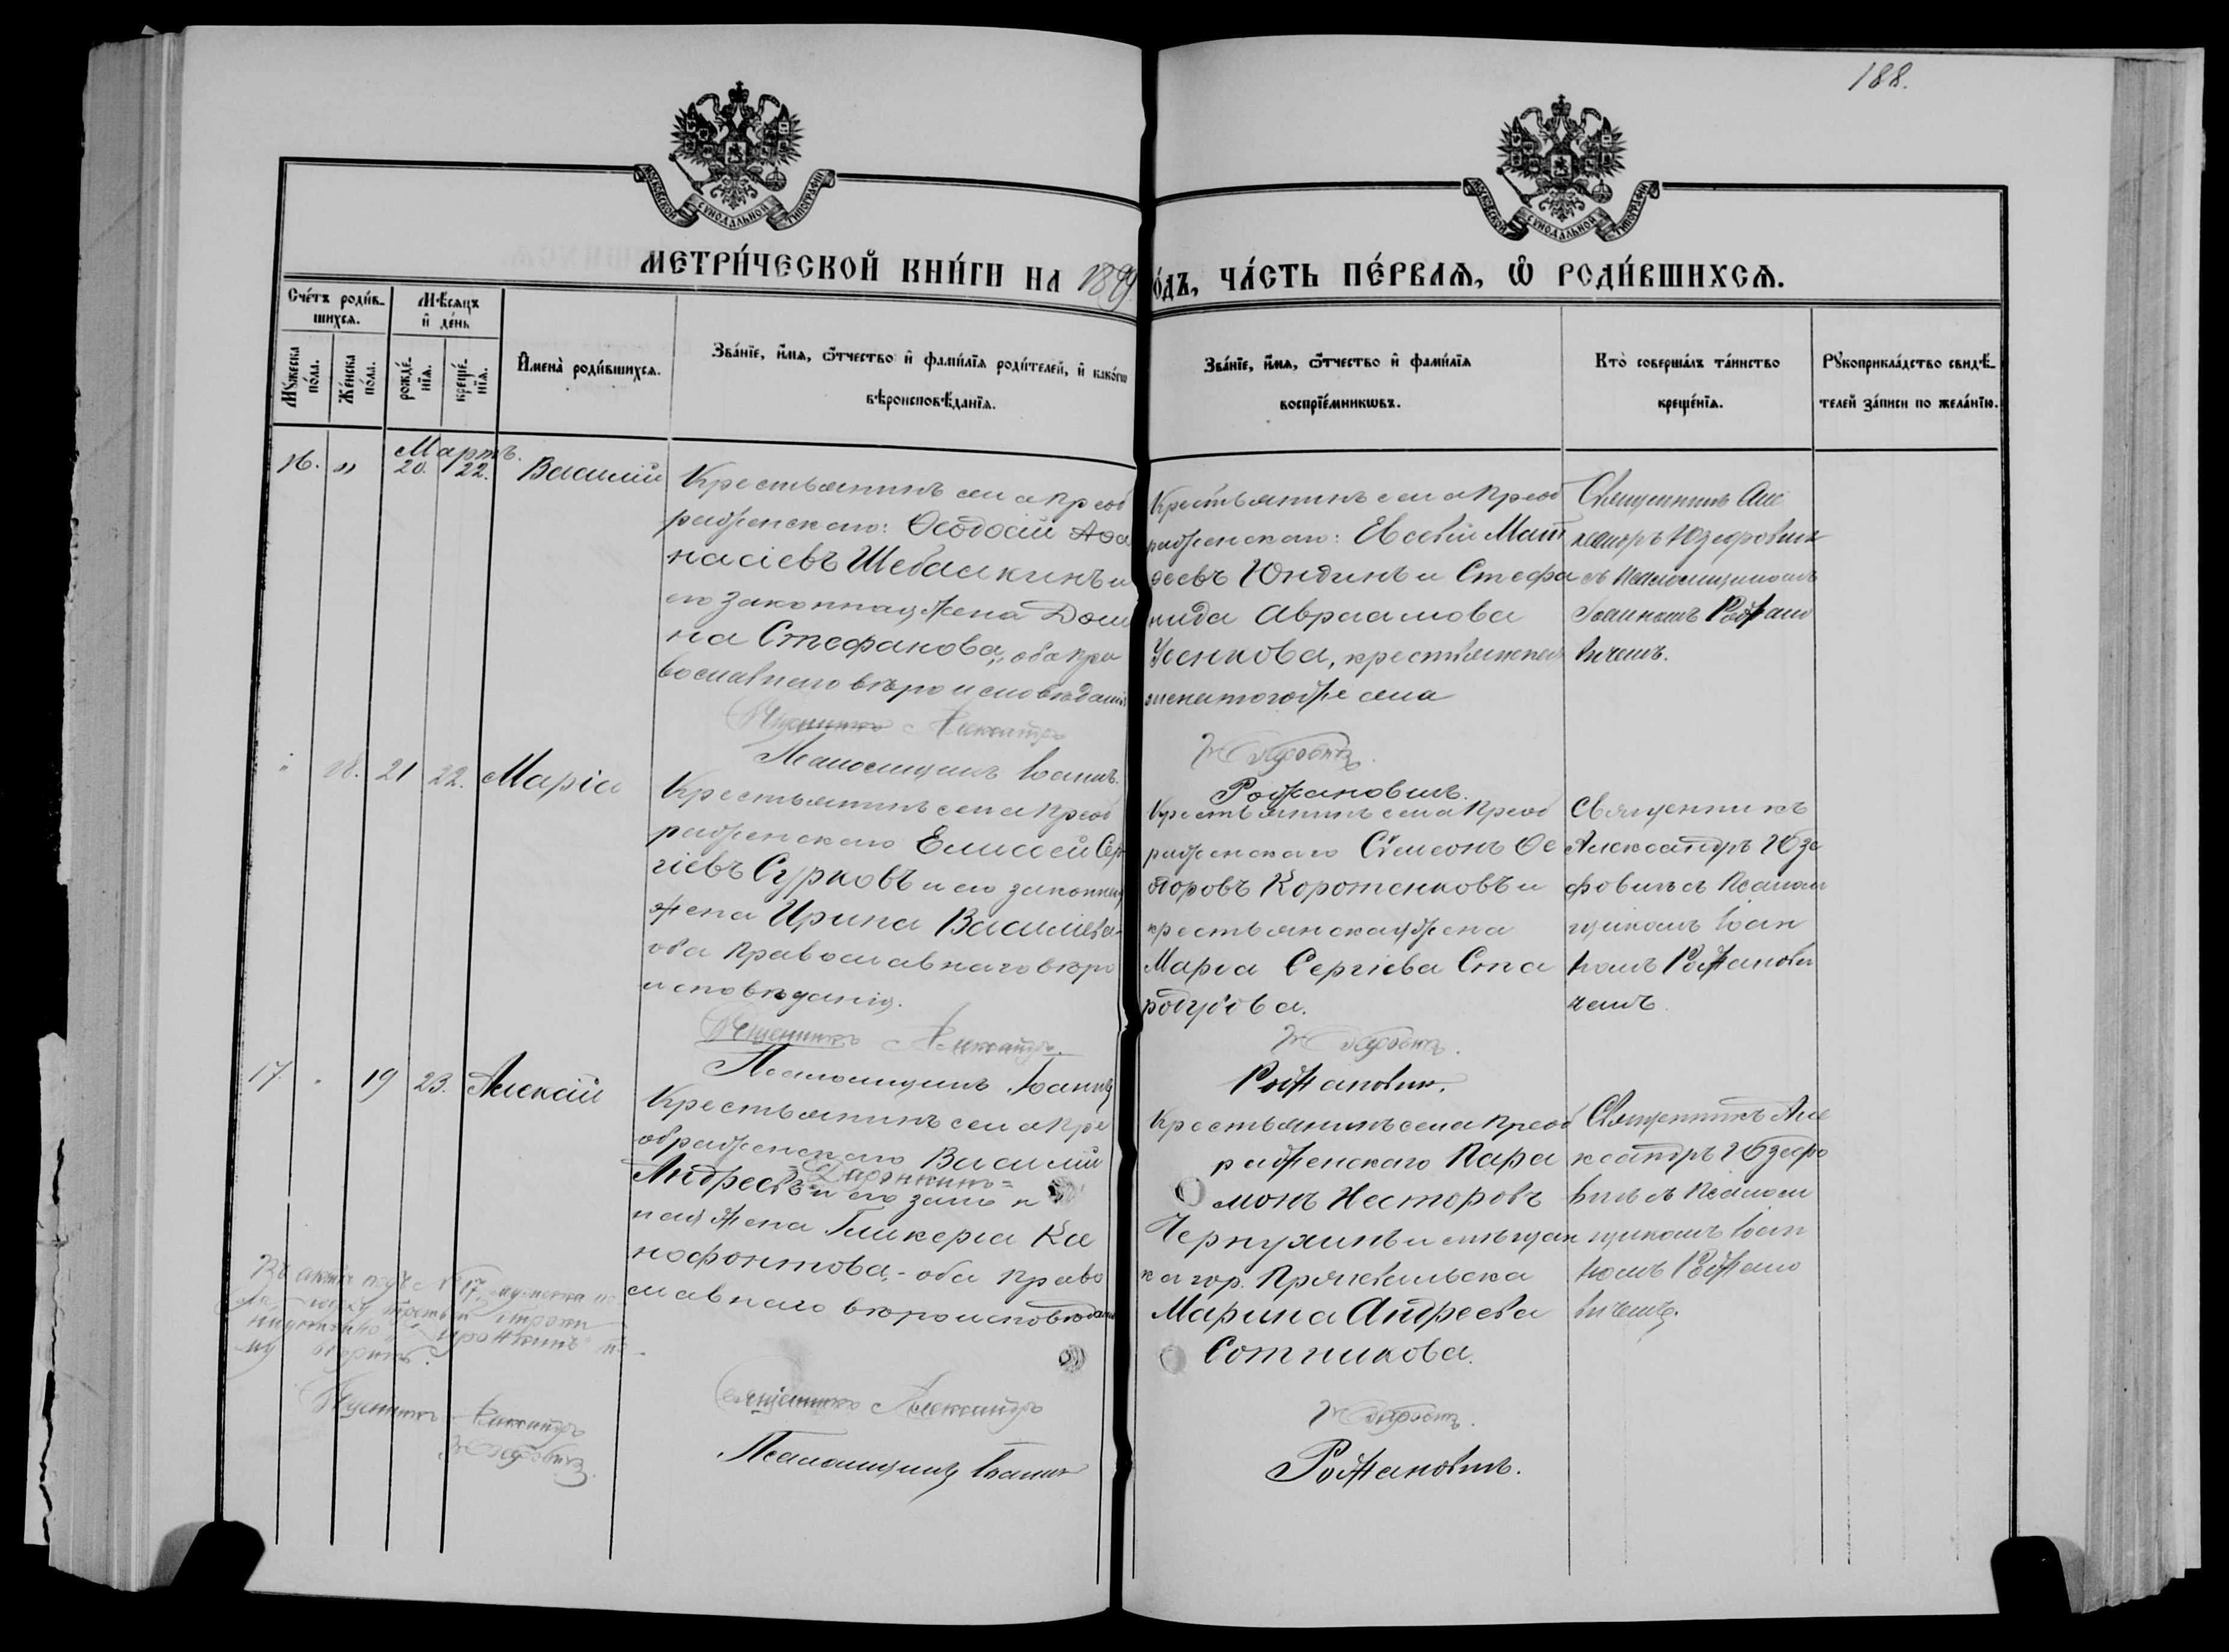 188.
МОСКОВСКОЙ СѴНОДАЛЬНОЙ ТИПОГРАФІИ
МОСКОВСКОЙ СѴНОДАЛЬНОЙ ТИПОГРАФІИ
МЕТРИ́ЧЕСКОЙ КНИ́ГИ НА 1899 О́ДЪ, ЧА́СТЬ ПЕ́РВАѦ, Ѽ РОДИ́ВШИХСѦ.
Сче́тъ роди́в-
шихсѧ.
Мꙋ́жеска по́ла.
Же́нска по́ла.
Мѣ́сѧцъ
и҆ де́нь
рожде́нїѧ.
креще́нїѧ.
И҆мена̀ роди́вшихсѧ.
Зва́нїе, и҆́мѧ, ѻ҆́тчество и҆ фами́лїѧ роди́телей, и҆ како́гѡ
вѣроисповѣ́данїѧ.
Зва́нїе, и҆́мѧ, ѻ҆́тчество и҆ фами́лїѧ
воспрїе́мникѡвъ.
Кто̀ соверша́лъ та́инство
креще́нїѧ.
Рꙋкоприкла́дство свидѣ́-
телей за́писи по жела́нїю.
Мартъ.
16. " 20. 22. Василій
Крестьянинъ села Преоб
раженскаго: Ѳеодосій Аѳа
насіевъ Шебалкинъ и
его законная жена Дом
на Стефанова, оба пра
вославнаго вѣроисповѣданія
Священникъ Александръ
Псаломщикъ Іоаннъ
Крестьянинъ села Преоб
раженскаго: Евсевій Мат
ѳеевъ Юндинъ и Стефа
нида Авраамова
Усенкова, крестьянская
жена тогоже села
Юзефовичъ.
Рожановичъ.
Священникъ Але
ксандръ Юзефович
съ Псаломщикомъ
Іоанномъ Рожано
вичемъ.
" 18. 21 22. Марія
Крестьянинъ села Преоб
раженскаго Елисей Сер
гіевъ Сурковъ и его законная
жена Ирина Василіева-
оба Православнаго вѣро
исповѣданія.
Священникъ Александръ
Псаломщикъ Іоаннъ
Крестьянинъ села Преоб
раженскаго Сѵмеонъ Ѳе
одоровъ Коротенковъ и
крестьянская жена
Марѳа Сергіева Ста
родубова.
Юзефовичъ.
Рожановичъ.
Священникъ
Александръ Юзе
фовичъ съ Псалом
щикомъ Іоан
номъ Рожанови
чемъ.
17. " 19 23. Алексій
Крестьянинъ села Пре
ображенскаго Василій
Андреевъ и его закон
ная жена Гликерія Ксе
нофонтова,- оба Право
славнаго вѣроисповѣданія
Священникъ Александръ
Псаломщикъ Іоаннъ
Крестьянинъ села Преоб
раженскаго Пара
монъ Несторовъ
Чернухинъ и мѣщан
ка гор. Пржевальска
Марина Андреева
Сотникова.
Юзефовичъ.
Рожановичъ.
Священникъ Але
ксандръ Юзефо
вичъ съ Псалом
щикомъ Іоан
номъ Рожано
вичемъ.
Въ актѣ подъ № 17, мужска по
ла, третьей строки
вѣрить.
Священникъ Александръ
Юзефовичъ.